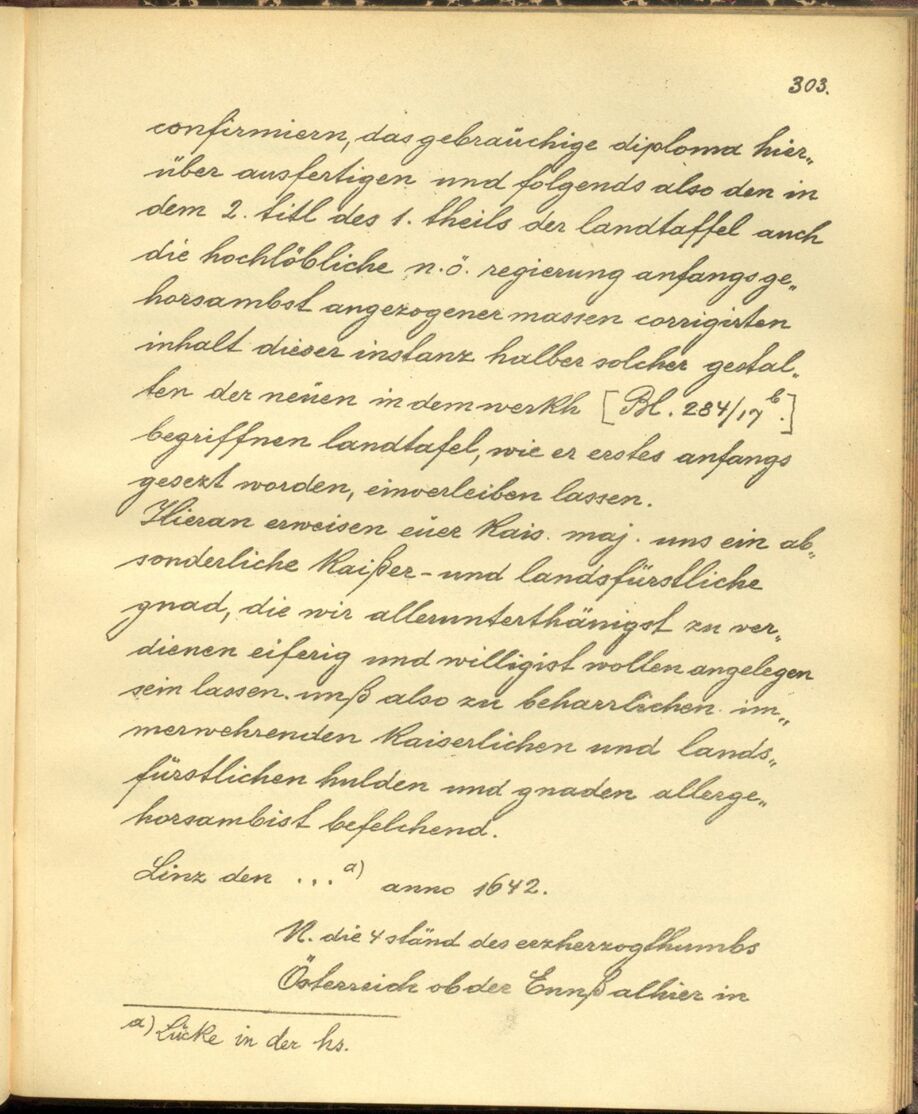 303.
confirmiern, das gebraüchige diploma hier„
über ausfertigen und folgends also den in
dem 2. titl des 1. theils der landtaffel auch
die hochlöbliche n.ö. regierung anfangs ge„
horsambst angezogener massen corrigirten
inhalt dieser instanz halber solcher gestal„
ten der neüen in dem werkh [Bl. 284/17b.]
begriffnen landtafel, wie er erstes anfangs
gesezt worden, einverleiben lassen.
Hieran erweisen eüer kais. maj. uns ein ab„
sonderliche kaißer- und landsfürstliche
gnad, die wir allerunterthänigst zu ver„
dienen eiferig und willigist wollen angelegen
sein lassen. unß also zu beharrlichen im„
merwehrenden kaiserlichen und lands„
fürstlichen hulden und gnaden allerge„
horsambist befelchend.
Linz den ...a) anno 1642.
N. die 4 ständ des erzherzogthumbs
Österreich ob der Ennß alhier in
a) Lücke in der hs.